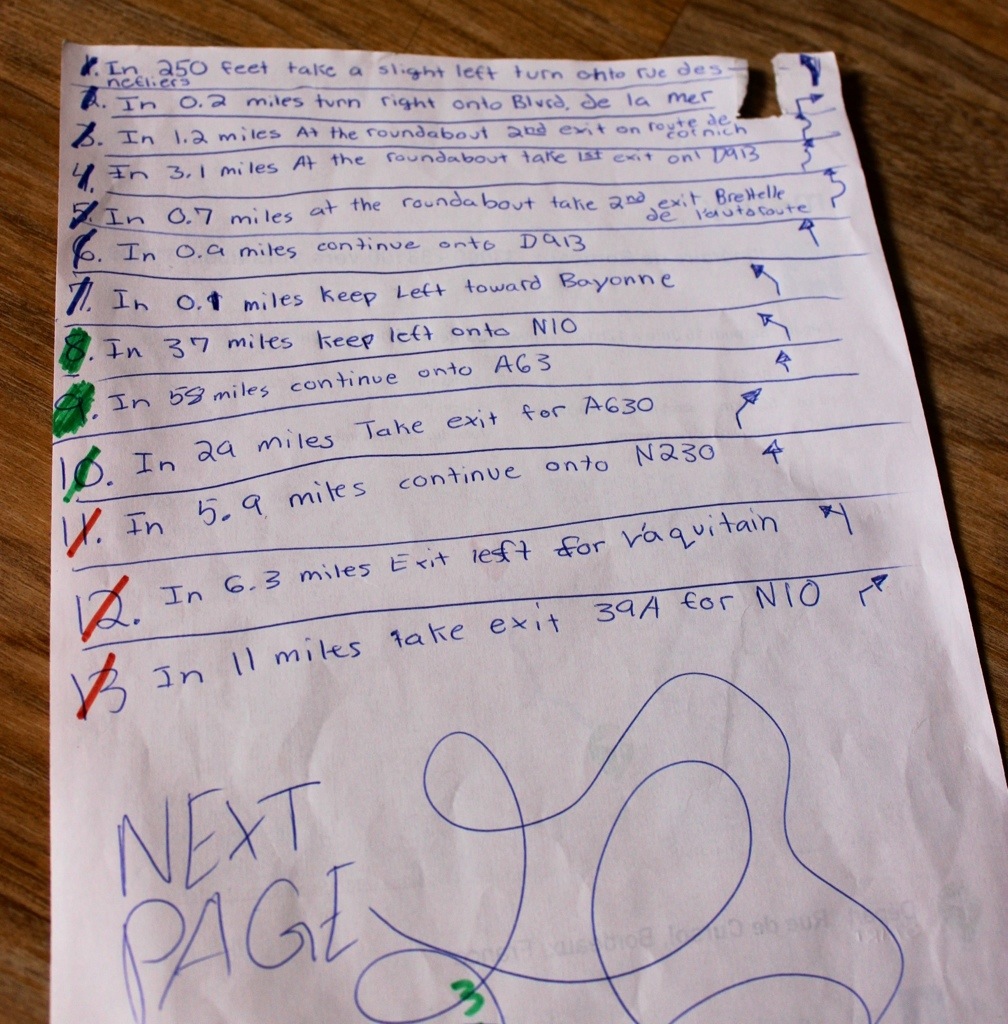 1. In 250 feet take a slight left turn onto rue des-
nefliers
2. In 0.2 miles turn right onto Blvrd. de la mer
3. In 1.2 miles At the roundabout 2nd exit on route de
cornich
4. In 3.1 miles At the roundabout take 1st exit on D913
5. In 0.7 miles at the roundabout take 2nd exit Bretelle
de l'autoroute
6. In 0.9 miles continue onto D913
7. In 0.1 miles Keep Left toward Bayonne
8. In 37 miles keep left onto N10
9. In 58 miles continue onto A63
10. In 29 miles Take exit for A630
11. In 5.9 miles continue onto N230
12. In 6.3 miles Exit left for ráquitain
13 In 11 miles take exit 39A for N10
NEXT
PAGE
3
Rue de Cursol, Bordeaux, France